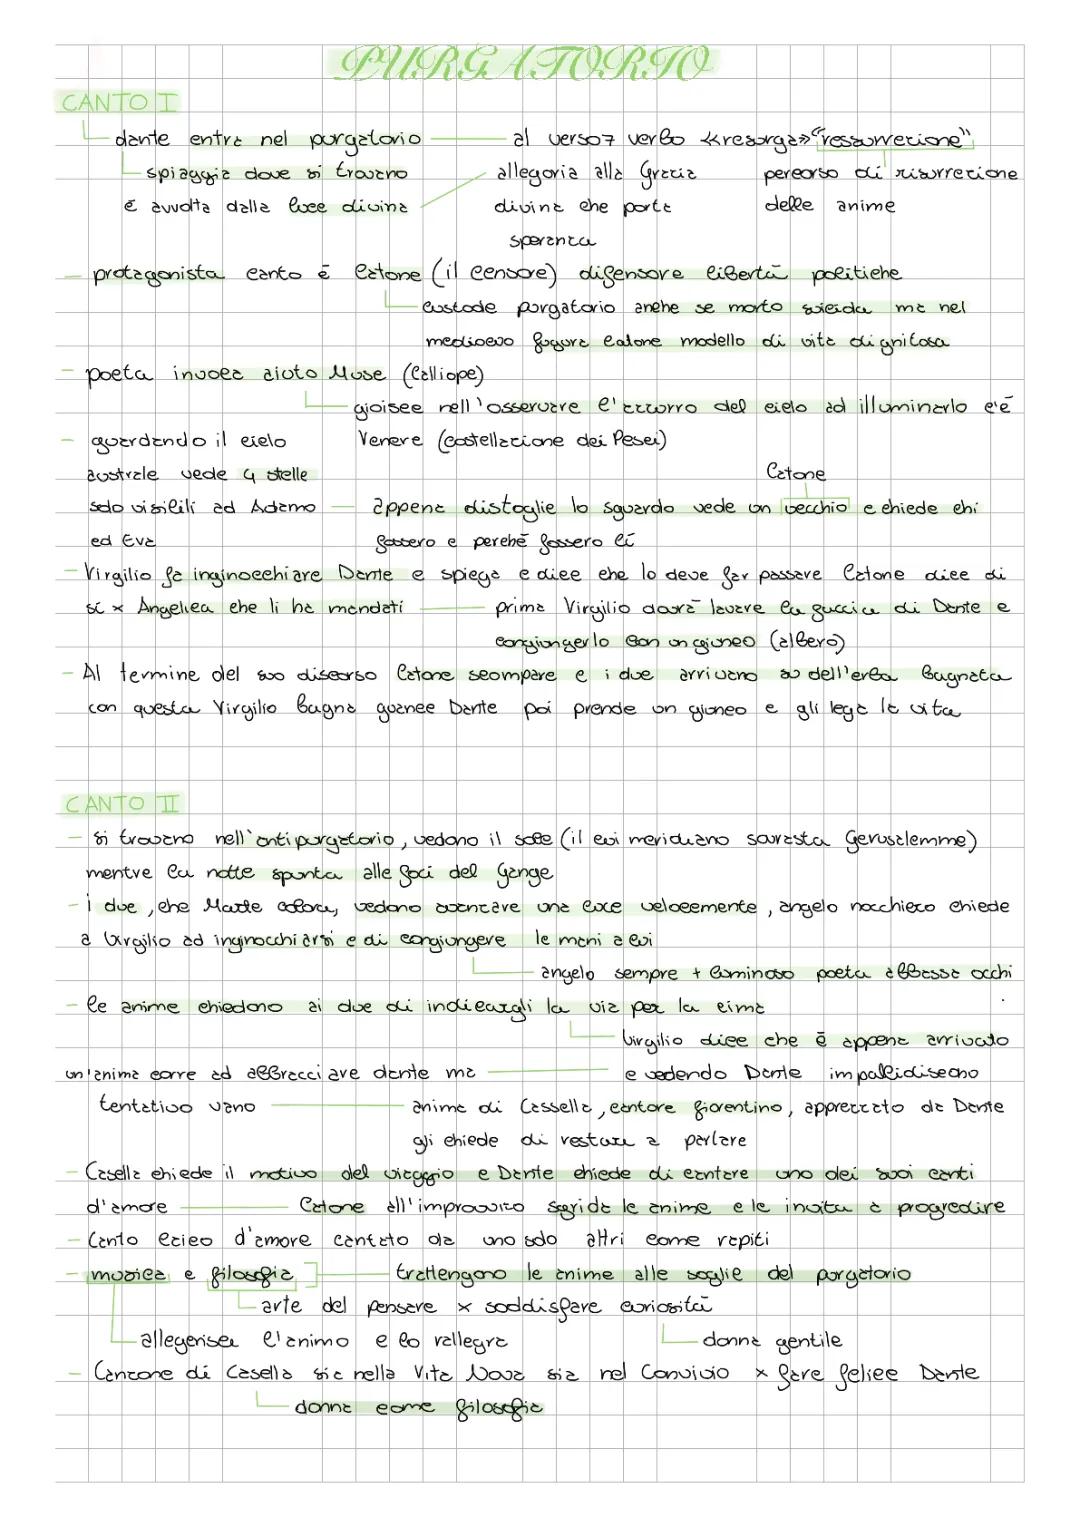 PURGATORIO
CANTO I
dante entra nel purgatorio al verso7 verbo «resurga» "ressurrezione"
spiaggia dove si trovano allegoria alla Grazia percorso di risurrezione
é avvolta dalla luce divina divina che porta delle anime
speranza
- protagonista canto é Catone (il censore) difensore libertà politiche
custode purgatorio anche se morto suicida ma nel
medioevo figura catone modello di vita dignitosa
- poeta invoca aiuto Muse (Calliope)
gioisce nell'osservare l'azzurro del cielo ad illuminarlo c'é
- guardando il cielo Venere (costellazione dei Pesci)
australe vede 4 stelle Catone
solo visibili ad Adamo appena distoglie lo sguardo vede un vecchio e chiede chi
ed Eva fossero e perché fossero lí
- Virgilio fa inginocchiare Dante e spiega e dice che lo deve far passare Catone dice di
sí x Angelica che li ha mandati prima Virgilio dovrà lavare la faccia di Dante e
congiungerlo con un giunco (albero)
- Al termine del suo discorso Catone scompare e i due arrivano su dell'erba bagnata
con questa Virgilio bagna guance Dante poi prende un giunco e gli lega la vita
CANTO II
- si trovano nell'antipurgatorio, vedono il sole (il cui meridiano sovrasta Gerusalemme)
mentre la notte spunta alle foci del Gange
- i due, che Marte colora, vedono avanzare una luce velocemente, angelo nocchiero chiede
a Virgilio ad inginocchiarsi e di congiungere le mani a lui
angelo sempre + luminoso poeta abbassa occhi
- le anime chiedono ai due di indicargli la via per la cima
Virgilio dice che é appena arrivato
un'anima corre ad abbracciare dante ma e vedendo Dante impallidiscono
tentativo vano anima di Cassella, cantore fiorentino, apprezzato da Dante
gli chiede di restare a parlare
- Casella chiede il motivo del viaggio e Dante chiede di cantare uno dei suoi canti
d'amore Catone all'improvviso sgrida le anime e le invita a progredire
- Canto lirico d'amore cantato da uno solo altri come rapiti
- musica e filosofia trattengono le anime alle soglie del purgatorio
arte del pensare x soddisfare curiosità
allegerisce l'animo e lo rallegra donna gentile
- Canzone di Casella sia nella Vita Nova sia nel Convivio x fare felice Dante
donna come filosofia